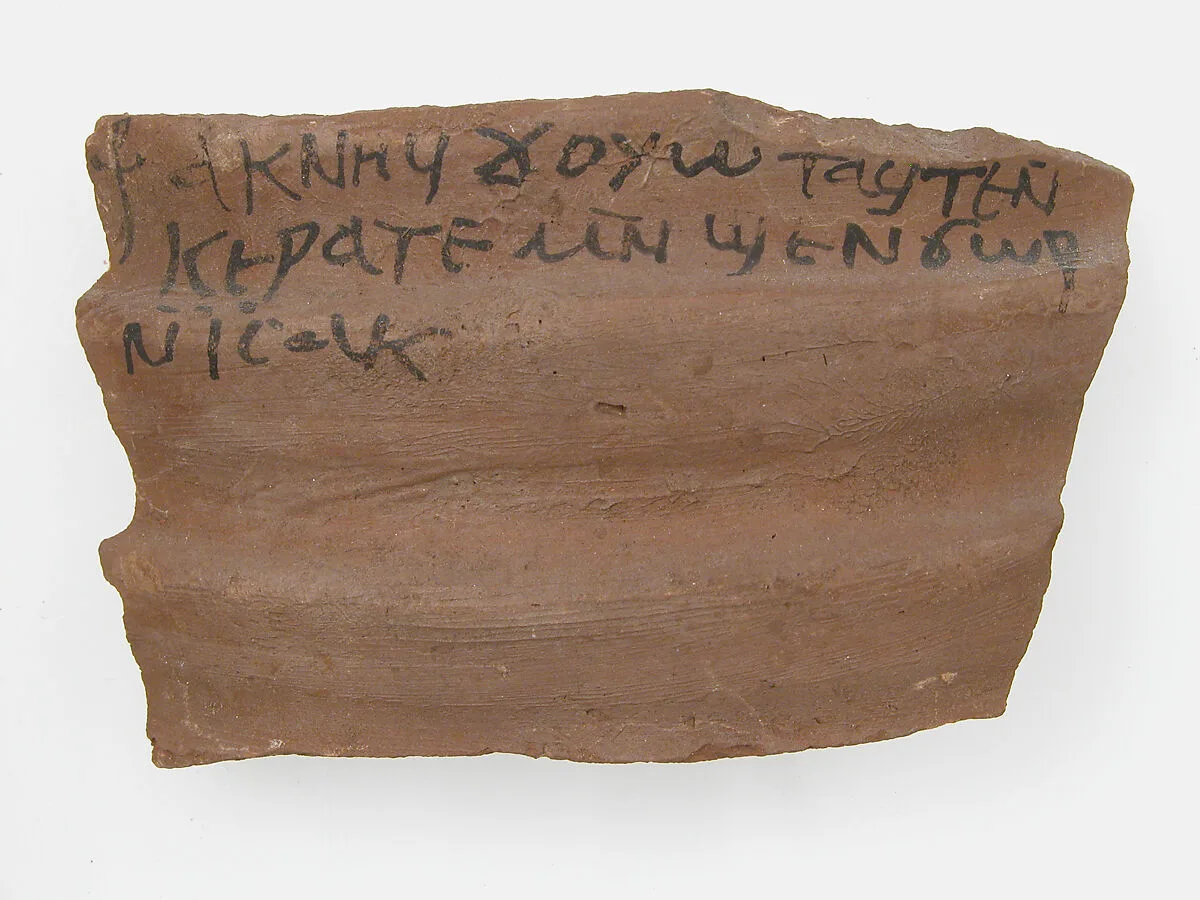 ⳨ ⲁⲕⲛⲏⲩ ϫⲟⲩⲱ ⲧⲁⲩⲧⲉⲛ
ⲕⲉⲣⲁⲧⲉ ⲙⲛ̄ ϣⲉⲛϭⲱⲣ
ⲛ̄ⲓ̈ⲥⲁⲕ